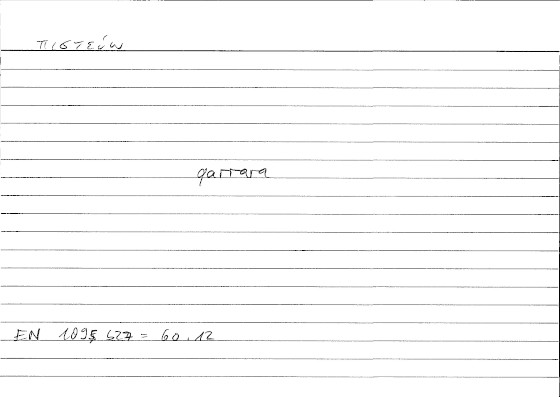 πιστεύω
qarrara
EN 1895 627 = 60.12